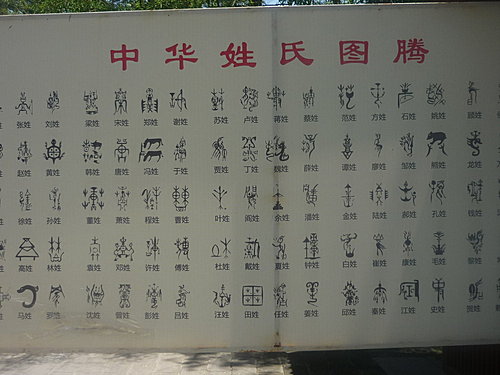 中华姓氏图腾
张姓 刘姓 梁姓 宋姓 郑姓 谢姓 苏姓 卢姓 蒋姓 蔡姓 范姓 方姓 石姓 姚姓 顾姓
赵姓 黄姓 韩姓 唐姓 冯姓 于姓 贾姓 丁姓 魏姓 薛姓 谭姓 廖姓 邹姓 熊姓 龙姓
徐姓 孙姓 董姓 萧姓 程姓 曹姓 叶姓 阎姓 余姓 潘姓 金姓 陆姓 郝姓 孔姓 钱姓
高姓 林姓 袁姓 邓姓 许姓 傅姓 杜姓 戴姓 夏姓 钟姓 白姓 崔姓 康姓 毛姓 黎姓
马姓 罗姓 沈姓 曾姓 彭姓 吕姓 汪姓 田姓 任姓 姜姓 邱姓 秦姓 江姓 史姓 贺姓